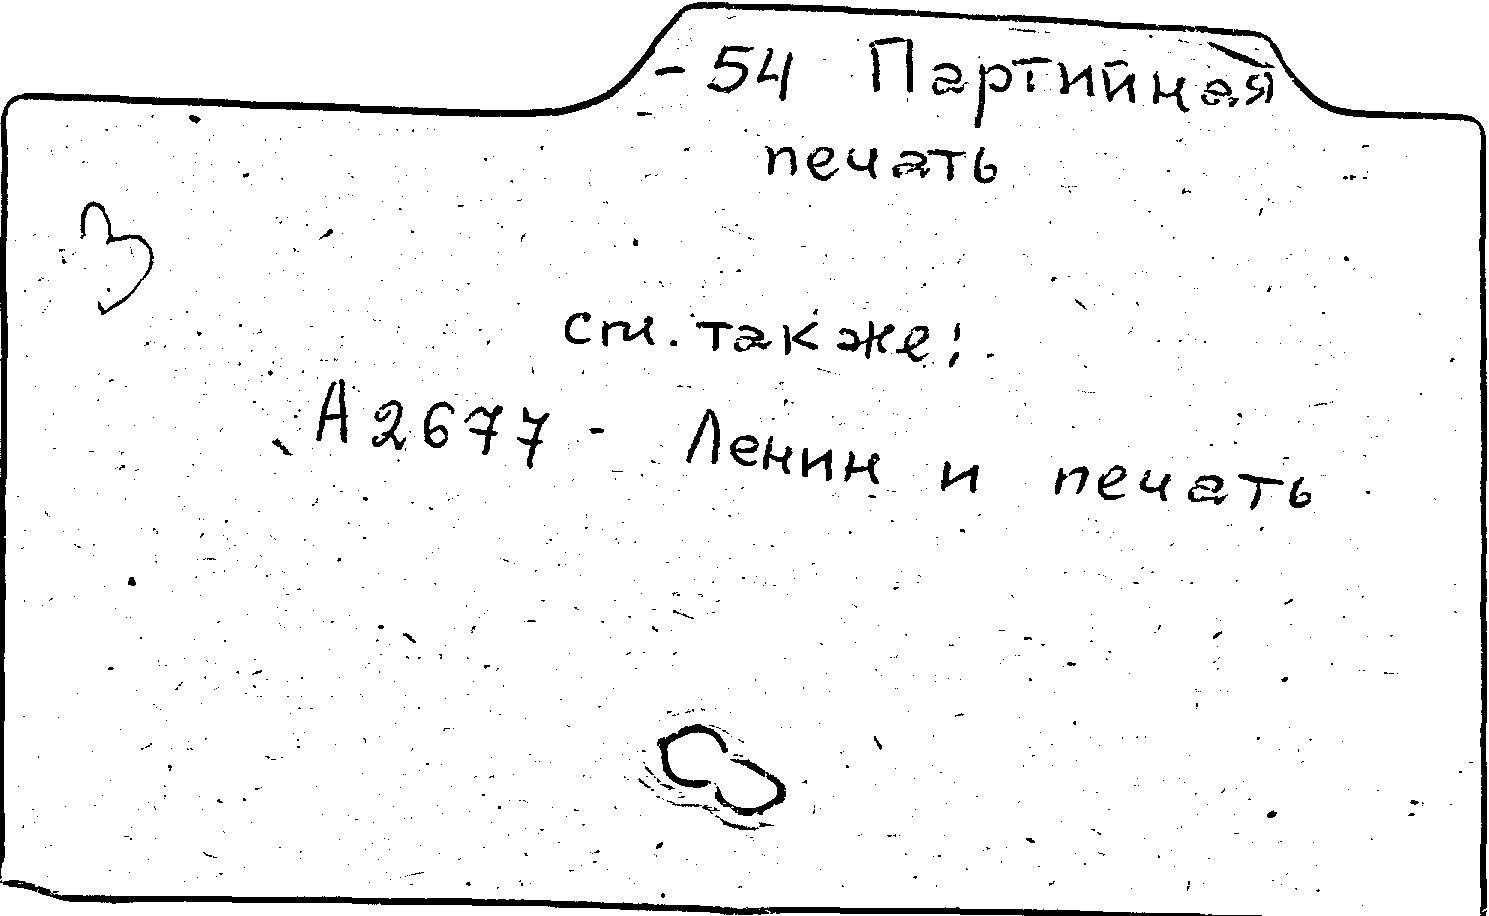 - 54 Партийная
печать
см. также:
А2677 - Ленин и печать